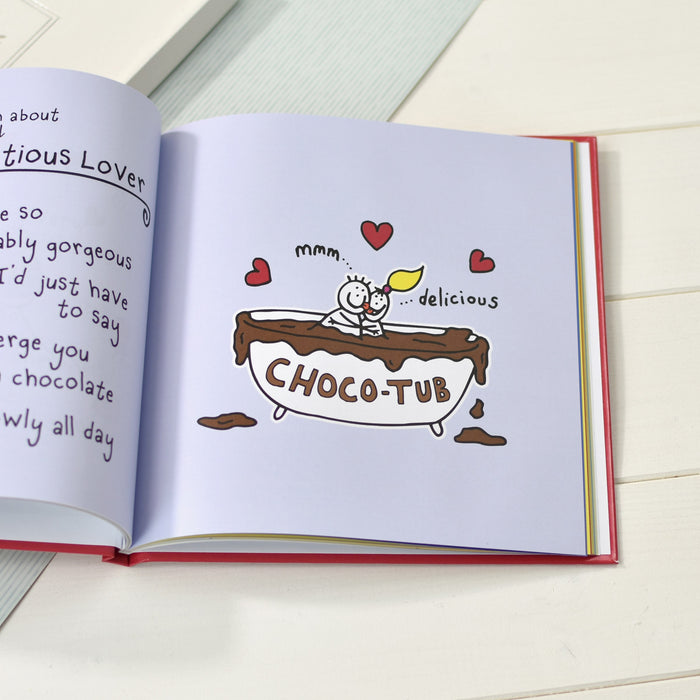 about
tious Lover
e so
ably gorgeous
I'd just have
to say
erge you
chocolate
wly all day
mmm...
...delicious
CHOCO-TUB